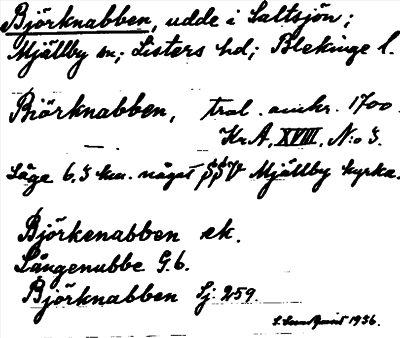 Björknabben, udde i Saltsjön;
Mjällby sn; Listers hd; Blekinge l.
Biörknabben, trol. omkr. 1700.
Kr.A. XVIII. N:o 3.
Läge 6.3 km. något SSV Mjällby kyrka.
Björkenabben ek.
Långenubbe G.b.
Björknabben Sj. 259.
S. Lundquist 1936.